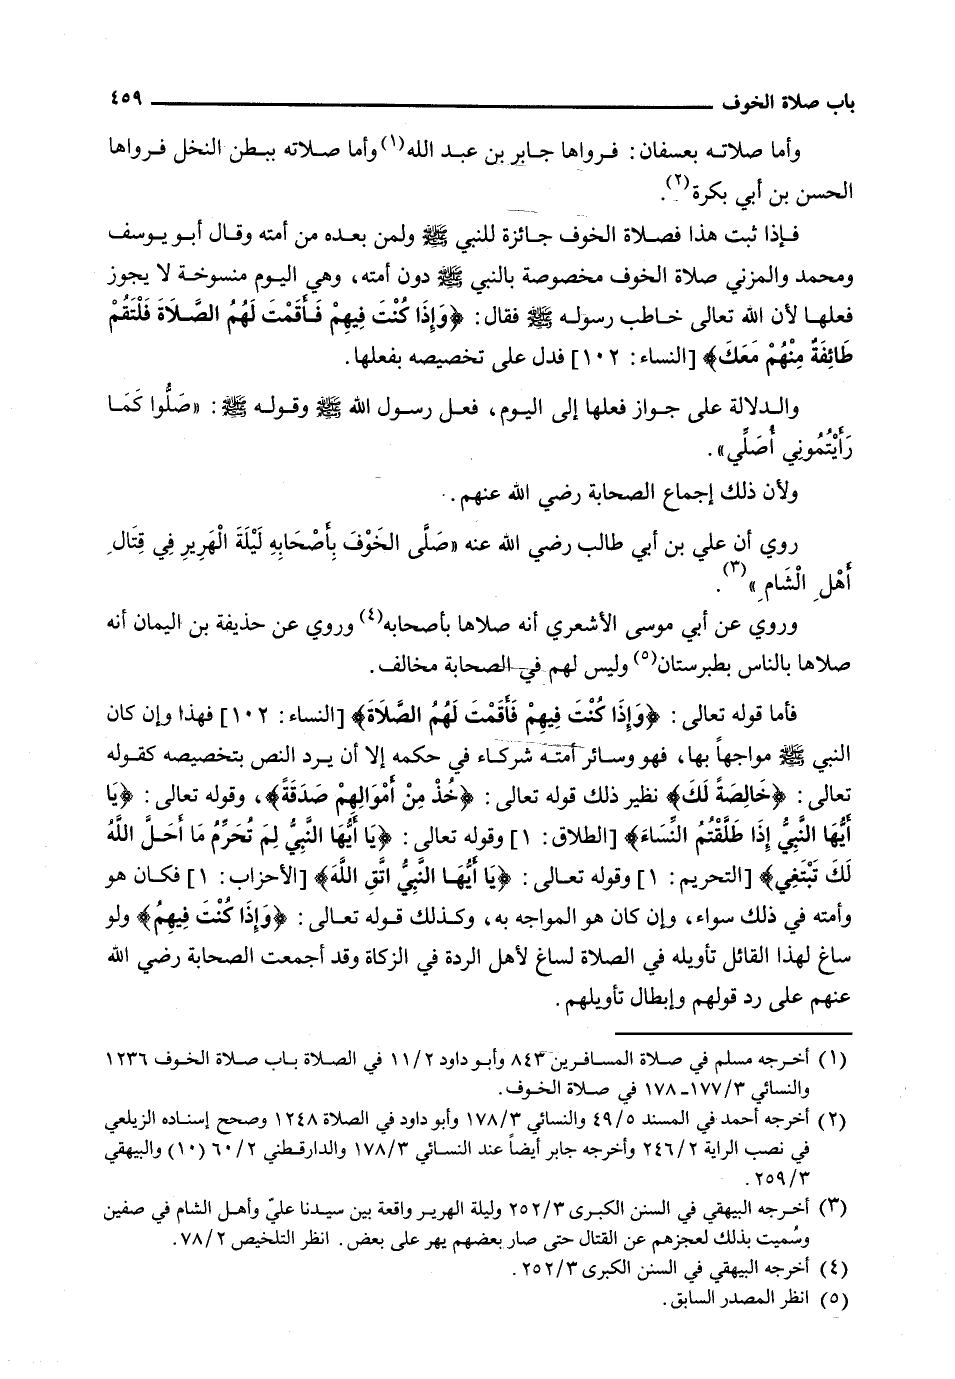 باب صلاة الخوف ٤٥٩
وأما صلاته بعسفان: فرواها جابر بن عبد الله(١) وأما صلاته ببطن النخل فرواها
الحسن بن أبي بكرة(٢).
فإذا ثبت هذا فصلاة الخوف جائزة للنبي ﷺ ولمن بعده من أمته وقال أبو يوسف
ومحمد والمزني صلاة الخوف مخصوصة بالنبي ﷺ دون أمته، وهي اليوم منسوخة لا يجوز
فعلها لأن الله تعالى خاطب رسوله ﷺ فقال: ﴿وَإِذَا كُنْتَ فِيهِمْ فَأَقَمْتَ لَهُمُ الصَّلَاةَ فَلْتَقُمْ
طَائِفَةٌ مِنْهُمْ مَعَكَ﴾ [النساء: ١٠٢] فدل على تخصيصه بفعلها.
والدلالة على جواز فعلها إلى اليوم، فعل رسول الله ﷺ وقوله ﷺ: «صَلُّوا كَمَا
رَأَيْتُمُونِي أُصَلِّي».
ولأن ذلك إجماع الصحابة رضي الله عنهم.
روي أن علي بن أبي طالب رضي الله عنه «صَلَّى الخَوْفَ بِأَصْحَابِهِ لَيْلَةَ الْهَرِيرِ فِي قِتَالِ
أَهْلِ الْشَامِ»(٣).
وروي عن أبي موسى الأشعري أنه صلاها بأصحابه(٤) وروي عن حذيفة بن اليمان أنه
صلاها بالناس بطبرستان(٥) وليس لهم في الصحابة مخالف.
فأما قوله تعالى: ﴿وَإِذَا كُنْتَ فِيهِمْ فَأَقَمْتَ لَهُمُ الصَّلَاةَ﴾ [النساء: ١٠٢] فهذا وإن كان
النبي ﷺ مواجهاً بها، فهو وسائر أمته شركاء في حكمه إلا أن يرد النص بتخصيصه كقوله
تعالى: ﴿خَالِصَةً لَكَ﴾ نظير ذلك قوله تعالى: ﴿خُذْ مِنْ أَمْوَالِهِمْ صَدَقَةً﴾، وقوله تعالى: ﴿يَا
أَيُّهَا النَّبِيُّ إِذَا طَلَّقْتُمُ النِّسَاءَ﴾ [الطلاق: ١] وقوله تعالى: ﴿يَا أَيُّهَا النَّبِيُّ لِمَ تُحَرِّمُ مَا أَحَلَّ اللَّهُ
لَكَ تَبْتَغِي﴾ [التحريم: ١] وقوله تعالى: ﴿يَا أَيُّهَا النَّبِيُّ اتَّقِ اللَّهَ﴾ [الأحزاب: ١] فكان هو
وأمته في ذلك سواء، وإن كان هو المواجه به، وكذلك قوله تعالى: ﴿وَإِذَا كُنْتَ فِيهِمْ﴾ ولو
ساغ لهذا القائل تأويله في الصلاة لساغ لأهل الردة في الزكاة وقد أجمعت الصحابة رضي الله
عنهم على رد قولهم وإبطال تأويلهم.
(١) أخرجه مسلم في صلاة المسافرين ٨٤٣ وأبو داود ١١/٢ في الصلاة باب صلاة الخوف ١٢٣٦
والنسائي ١٧٧/٣ـ١٧٨ في صلاة الخوف.
(٢) أخرجه أحمد في المسند ٤٩/٥ والنسائي ١٧٨/٣ وأبو داود في الصلاة ١٢٤٨ وصحح إسناده الزيلعي
في نصب الراية ٢٤٦/٢ وأخرجه جابر أيضاً عند النسائي ١٧٨/٣ والدارقطني ٦٠/٢ (١٠) والبيهقي
٢٥٩/٣.
(٣) أخرجه البيهقي في السنن الكبرى ٢٥٢/٣ وليلة الهرير واقعة بين سيدنا عليّ وأهل الشام في صفين
وسُميت بذلك لعجزهم عن القتال حتى صار بعضهم يهر على بعض. انظر التلخيص ٧٨/٢.
(٤) أخرجه البيهقي في السنن الكبرى ٢٥٢/٣.
(٥) انظر المصدر السابق.